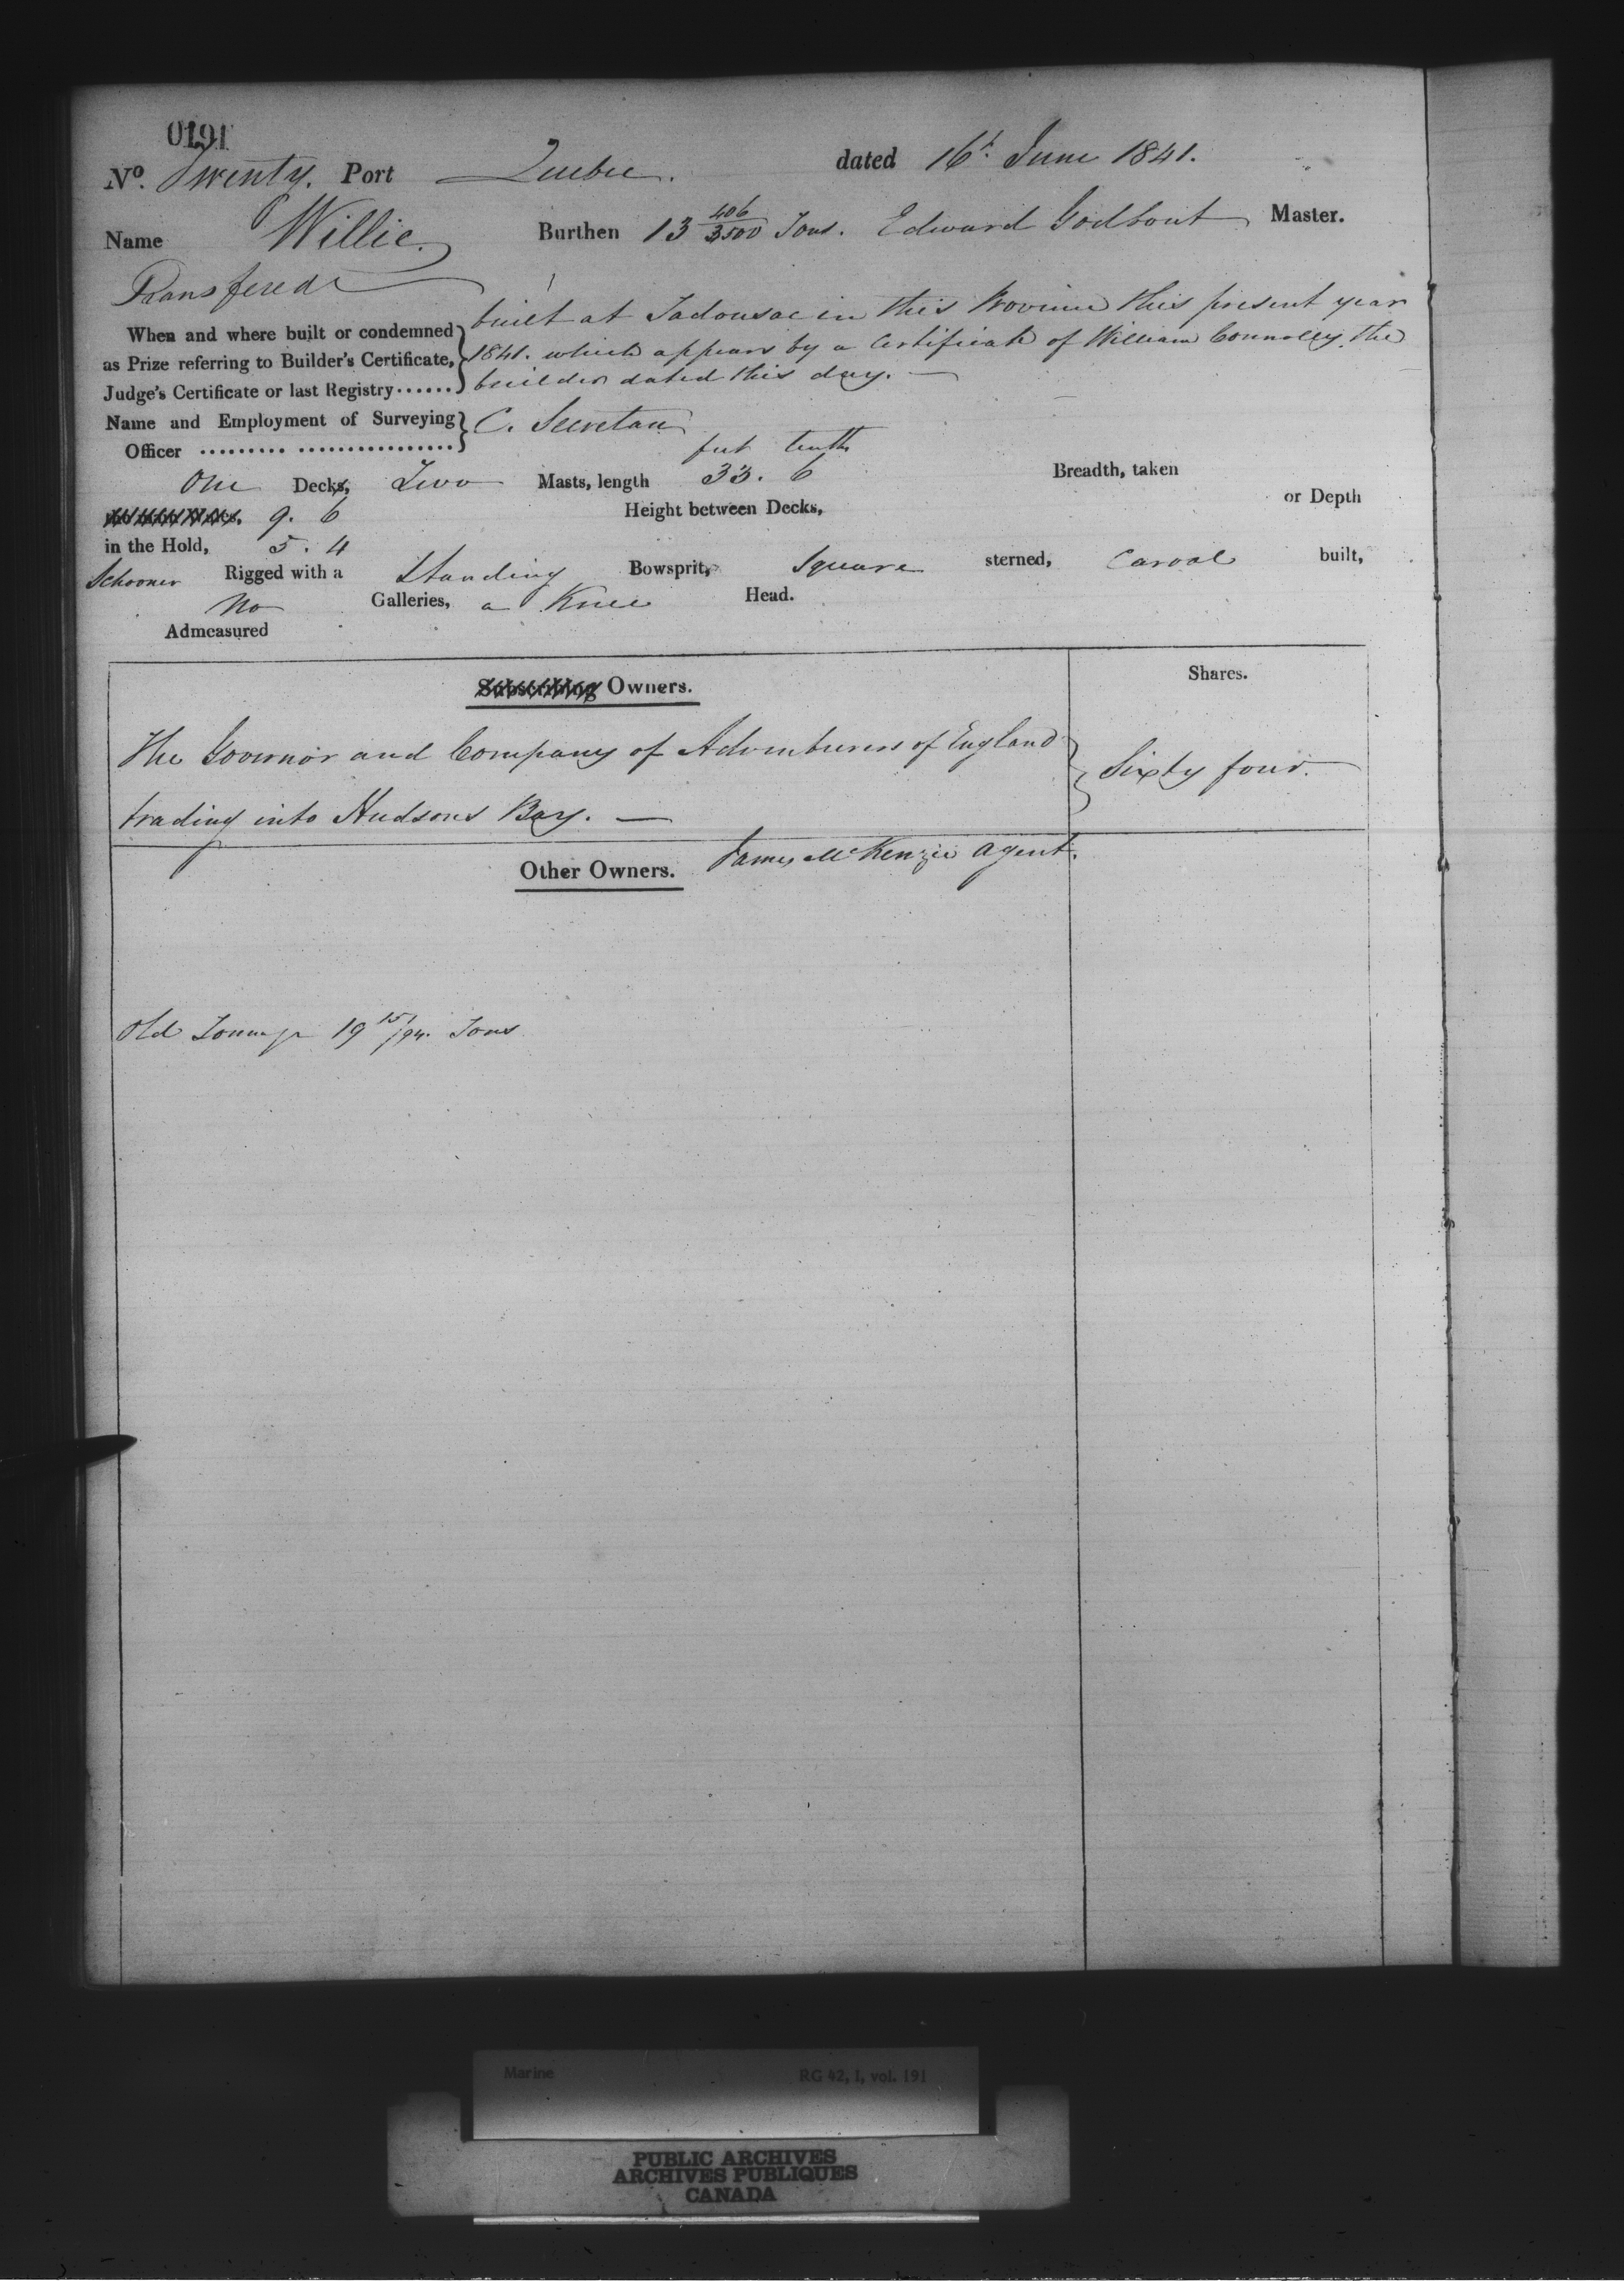 0191
No. Twenty. Port Quebec. dated 16t. June 1841.
Name Willie. Burthen 13 406/3500 Tons. Edward Godbout Master.
Transfered
When and where built or condemned as Prize referring to Builder's Certificate, Judge's Certificate or last Registry......
built at Tadousac in this Province this present year
1841. which appears by a Certificate of William Connolly the
builder dated this day. —
Name and Employment of Surveying Officer ......... ................ C. Secretan
feet tenths
One Decks, Two Masts, length 33. 6 Breadth, taken
9. 6 Height between Decks, or Depth
in the Hold, 5. 4
Schooner Rigged with a Standing Bowsprit, Square sterned, Carvel built,
No Galleries, a Knee Head.
Admeasured
Subscribing Owners. Shares.
The Governor and Company of Adventurers of England
trading into Hudsons Bay. — Sixty four.
Other Owners. James McKenzie agent.
Old Tonnage 19 15/94. Tons
Marine RG 42, I, vol. 191
PUBLIC ARCHIVES
ARCHIVES PUBLIQUES
CANADA